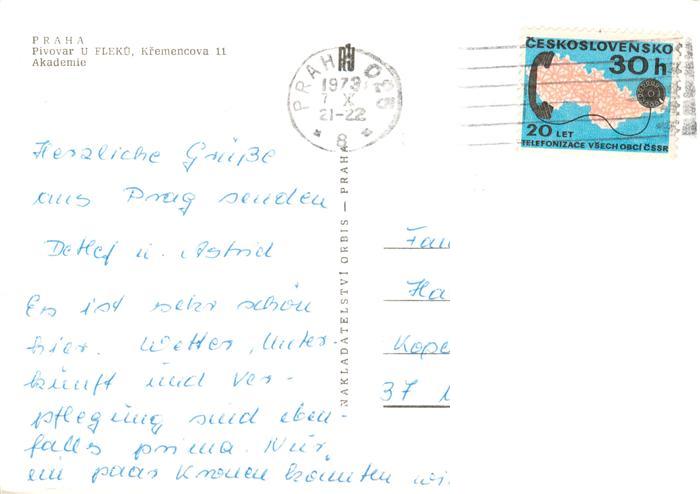 PRAHA
Pivovar U FLEKŮ, Křemencova 11
Akademie
PRAHA 
1973
7 X
21-22
8
ČESKOSLOVENSKO
30 h
20 LET
TELEFONIZACE VŠECH OBCÍ ČSSR
Herzliche Grüße
aus Prag senden
Detlef u. Astrid
Es ist sehr schön
hier. Wetter, Unter-
kunft und Ver-
pflegung sind eben-
falls prima. Nur
ein paar Kronen könnten wi
NAKLADATELSTVÍ ORBIS — PRAHA
Fam
Ha
Kope
37